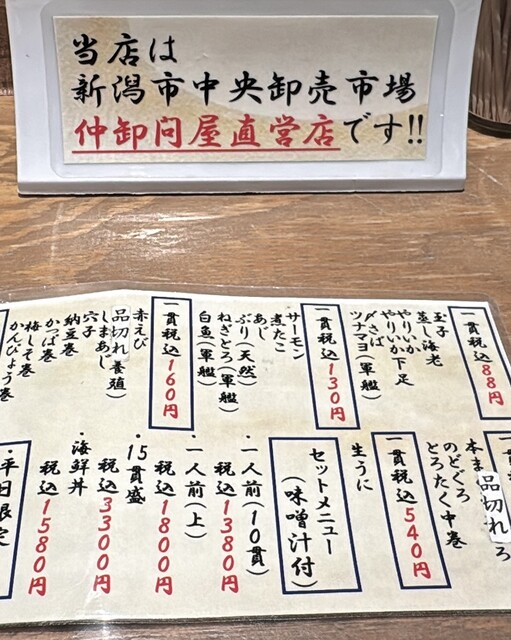 当店は
新潟市中央卸売市場
仲卸問屋直営店です!!
一貫税込88円
玉子
蒸し海老
やりいか
やりいか下足
〆さば
ツナマヨ(軍艦)
一貫税込130円
サーモン
煮たこ
あじ
ぶり(天然)
ねぎとろ(軍艦)
白魚(軍艦)
一貫税込160円
赤えび
品切れ
しまあじ
養殖)
穴子
納豆巻
かっぱ巻
梅しそ巻
かんぴょう巻
本ま
品切れ
ろ
のどぐろ
とろたく中巻
一貫税込540円
生うに
セットメニュー
(味噌汁付)
・一人前(10貫)
税込1380円
・一人前(上)
税込1800円
・15貫盛
税込3300円
・海鮮丼
税込1580円
・平日限定